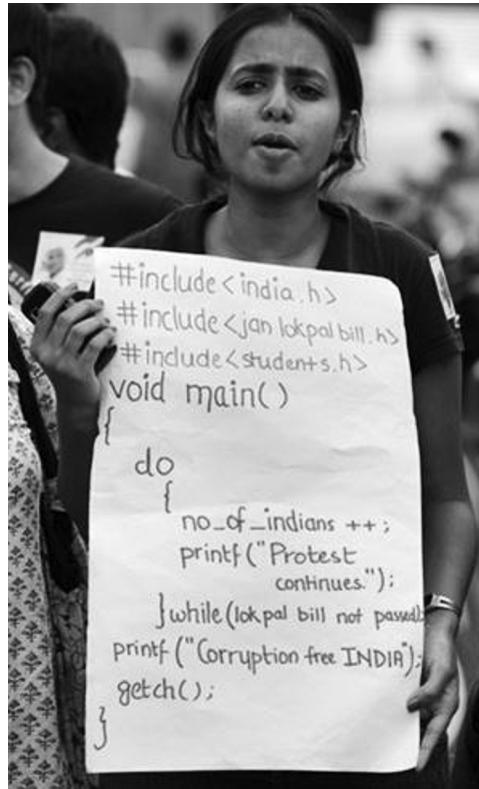 #include<india.h>
#include<jan lokpal bill.h>
#include<students.h>
void main()
{
do
{
no_of_indians ++;
printf("Protest
continues.");
}while(lokpal bill not passed);
printf("Corruption free INDIA");
getch();
}